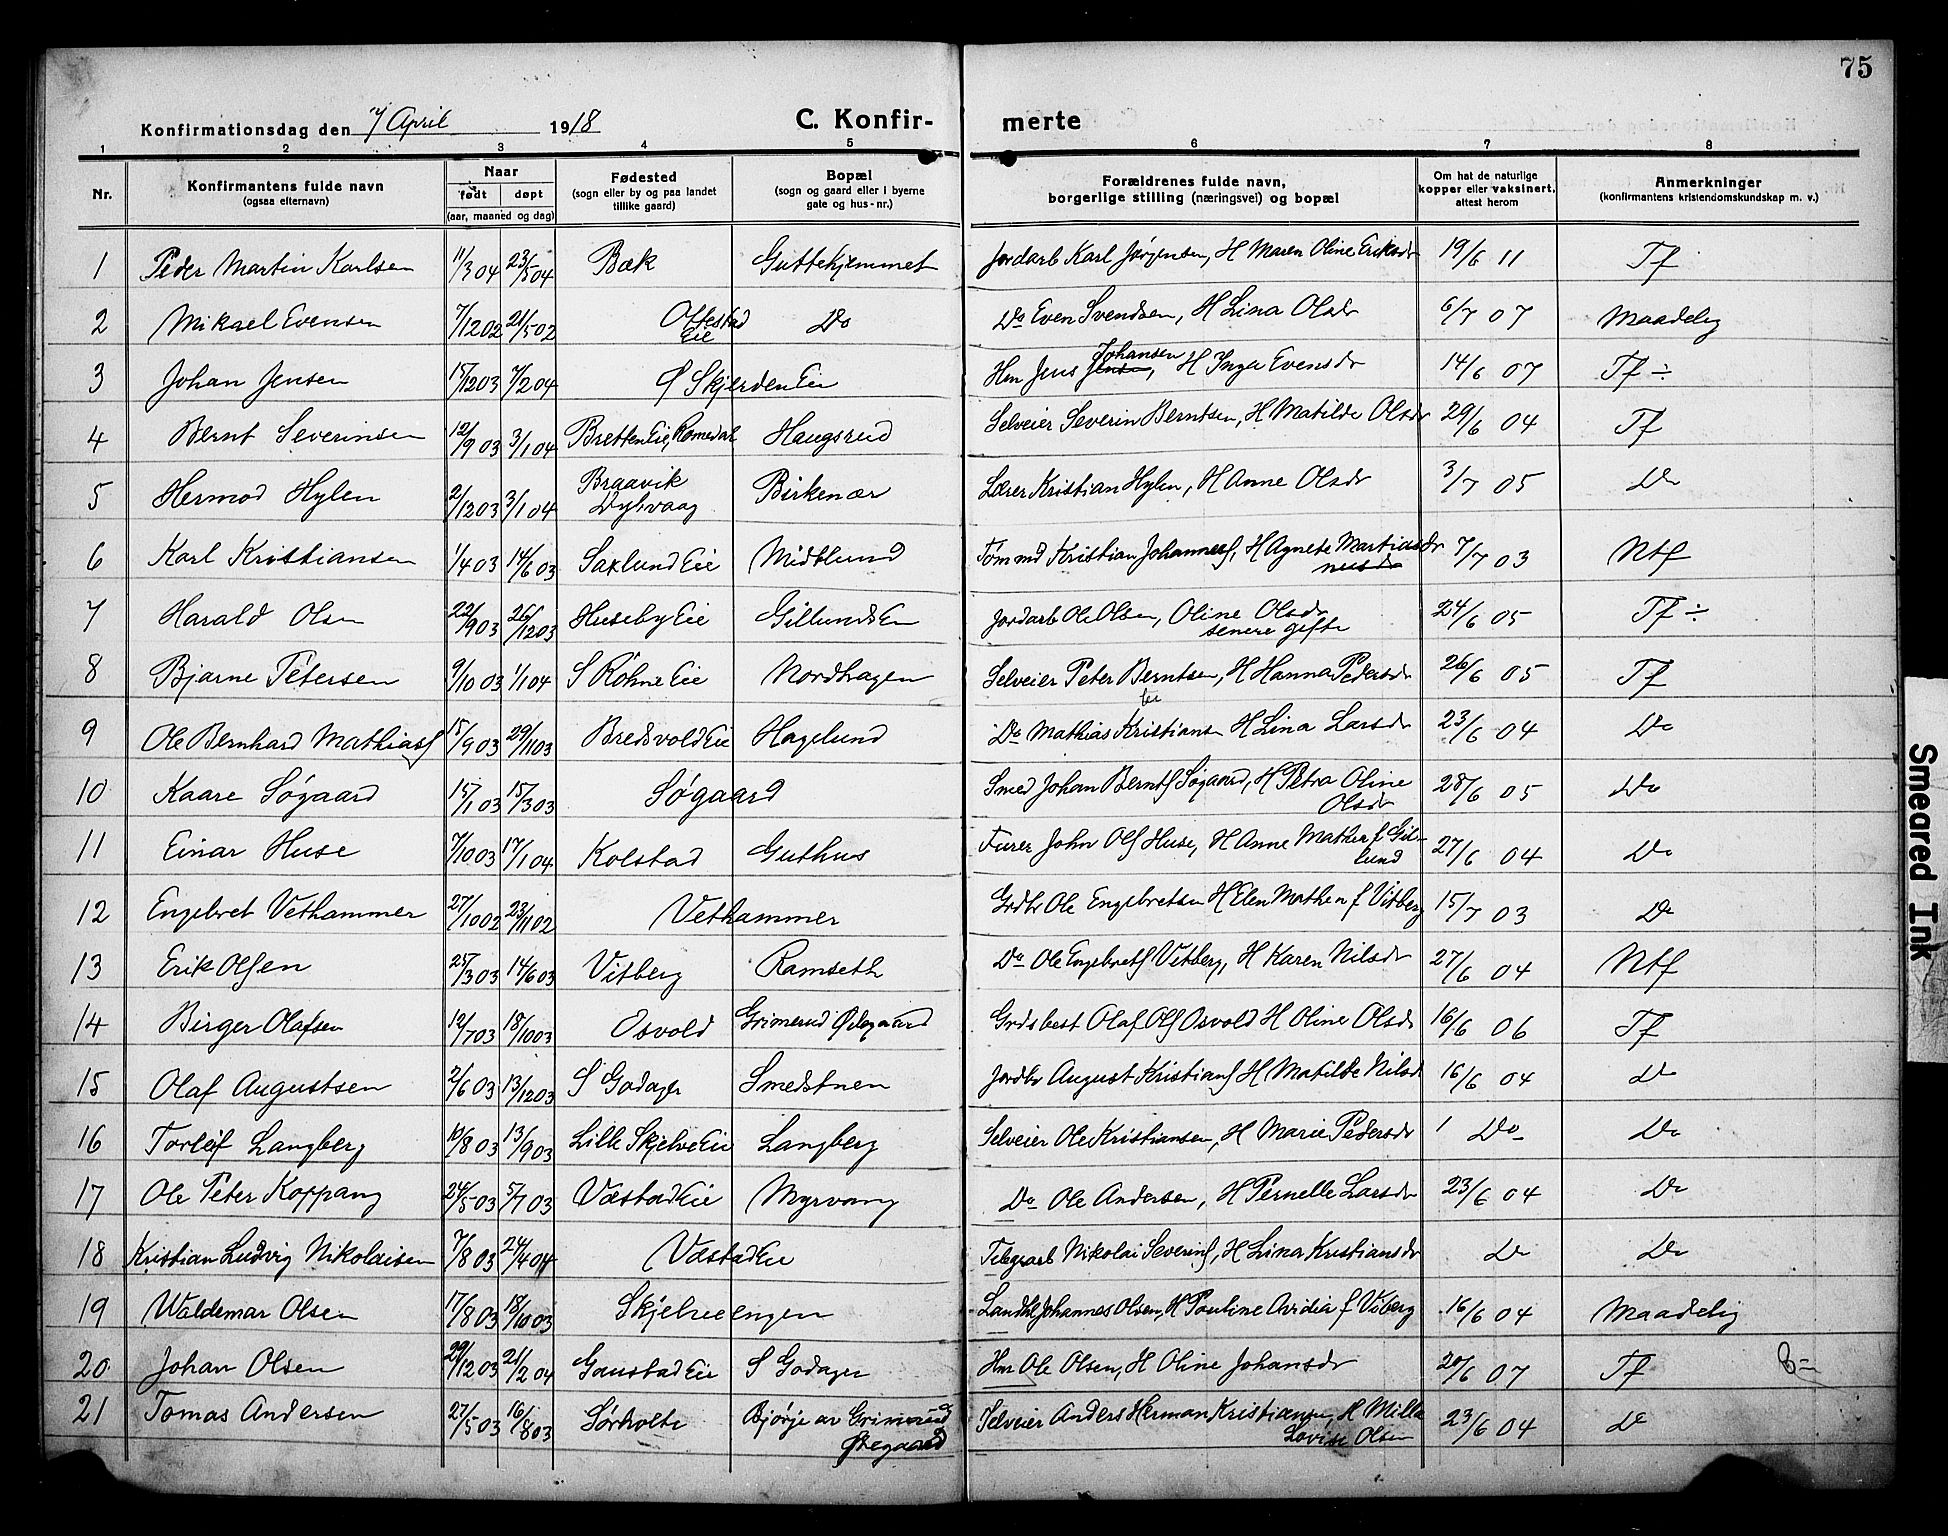 75
Konfirmationsdag den 7/ April 1918
C. Konfir- merte
1 2 3 4 5 6 7 8
Nr.
Konfirmantens fulde navn
(ogsaa efternavn)
Naar
født døpt
(aar, maaned og dag)
Fødested
(sogn eller by og paa landet
tillike gaard)
Bopæl
(sogn og gaard eller i byerne
gate og hus-nr.)
Forældrenes fulde navn,
borgerlige stilling (næringsvei) og bopæl
Om hat de naturlige
kopper eller vaksinert,
attest herom
Anmerkninger
(konfirmantens kristendomskundskap m. v.)
1 Peder Martin Karlsen 11/3 04 23/5 04 Bæk Guttehjemmet Jordarb Karl Jørgensen, H Maren Oline Eriksdr 19/6 11 Tf
2 Mikael Evensen 7/12 02 21/5 02 Ottestad Eie Do Do Even Svendsen, H Lina Olsdr 6/7 07 Maadelig
3 Johan Jensen 15/12 03 7/2 04 S Skjerden Eie Hm Jens Jensen Johansen, H Inga Evensdr 14/6 07 Tf ÷
4 Bernt Severinsen 12/9 03 3/1 04 Bretten Eie, Romedal Haugsrud Selveier Severin Berntsen, H Matilde Olsdr 29/6 04 Tf
5 Hermod Hylen 2/12 03 3/1 04 Braavik Dybvaag Birkenær Lærer Kristian Hylen, H Anne Olsdr 3/7 05 Do
6 Karl Kristiansen 1/4 03 14/6 03 Saxlund Eie Midtlund Tømmd Kristian Johannesf, H Agnete Martinsdr nusdr 7/7 03 Ntf
7 Harald Olsen 22/9 03 26/12 03 Huseby Eie Gillunds Eie Jordarb Ole Olsen, Oline Olsdr 24/6 05 Tf ÷
senere gifte
8 Bjarne Petersen 9/10 03 1/1 04 S Røhne Eie Nordhagen Selveier Peter Berntsen, H Hanna Pedersdr 26/6 05 Tf
9 Ole Bernhard Mathiasf 15/9 03 29/11 03 Bredsvold Eie Hagelund Do Mathias Kristiansen H Lina Larsdr 23/6 04 Do
10 Kaare Søgaard 15/1 03 15/3 03 Søgaard Smed Johan Berntf Søgaard, H Petra Oline 28/6 05 Do
Olsdr
11 Einar Huse 7/10 03 17/1 04 Kolstad Guthus Furer John Olf Huse, H Anne Mathea f Gil- 27/6 04 Do
lund
12 Engebret Vethammer 27/10 02 23/11 02 Vethammer Grdbr Ole Engebretsen H Elen Mathea f Vitberg 15/7 03 Do
13 Erik Olsen 25/3 03 14/6 03 Vitberg Ramseth Do Ole Engebretf Vitberg, H Karen Nilsdr 27/6 04 Ntf
14 Birger Olafsen 12/7 03 18/10 03 Osvold Grimerud Ødegaard Grdsbest Olaf Olf Osvold H Oline Olsdr 16/6 06 Tf
15 Olaf Augustsen 2/6 03 13/12 03 S Godager Smedstuen Jordbr August Kristiansf H Matilde Nilsdr 16/6 04 do
16 Torleif Langberg 10/8 03 13/9 03 Lille Skjelve Eie Langberg Selveier Ole Kristiansen, H Marie Pedersdr Do Do
17 Ole Peter Koppang 24/5 03 5/7 03 Væstad Eie Myrvang Do Ole Andersen, H Pernelle Larsdr 23/6 04 Do
18 Kristian Ludvig Nikolaisen 7/8 03 24/4 04 Væstad Eie Telegrarb Nikolai Severinf, H Lina Kristiansdr Do Do
19 Waldemar Olsen 17/8 03 18/10 03 Skjelveengen Landhl Johannes Olsen, H Pauline Avidia f Viberg 16/6 04 Maadelig
20 Johan Olsen 29/12 03 21/2 04 Gaustad Eie S Godager Hm Ole Olsen, H Oline Johansdr 20/6 07 Tf
21 Tomas Andersen 27/5 03 16/8 03 Sørholte Bjørje av Grimerud Selveier Anders Herman Kristiansen, H Milla 23/6 04 do
Øvegaard Lovise Olsen
Smeared Ink